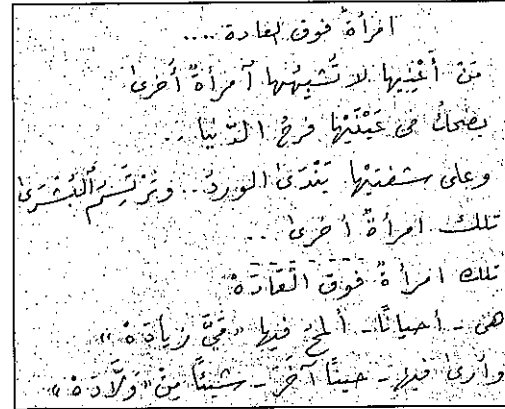 امرأةٌ فوق العادة ....
مَنْ أَعْنِيها لا تُشبِهُها آمرأةٌ أُخرىٰ
يضحكُ في عَيْنَيْها فرحُ الدّنيا ..
وعلى شفتيْها يَنْدَىٰ الوردُ .. وتَرْتَسِمُ ٱلْبُشْرَىٰ
تلك امرأةٌ أخرىٰ ..
تلك امرأةٌ فوقَ الْعَادَةْ
هي - أحيانًا - ألمحُ فيها «مَيَّ زيادَةْ»
وأرىٰ فيها - حينًا آخَرَ - شيئًا مِنْ «وَلَّادَةْ»